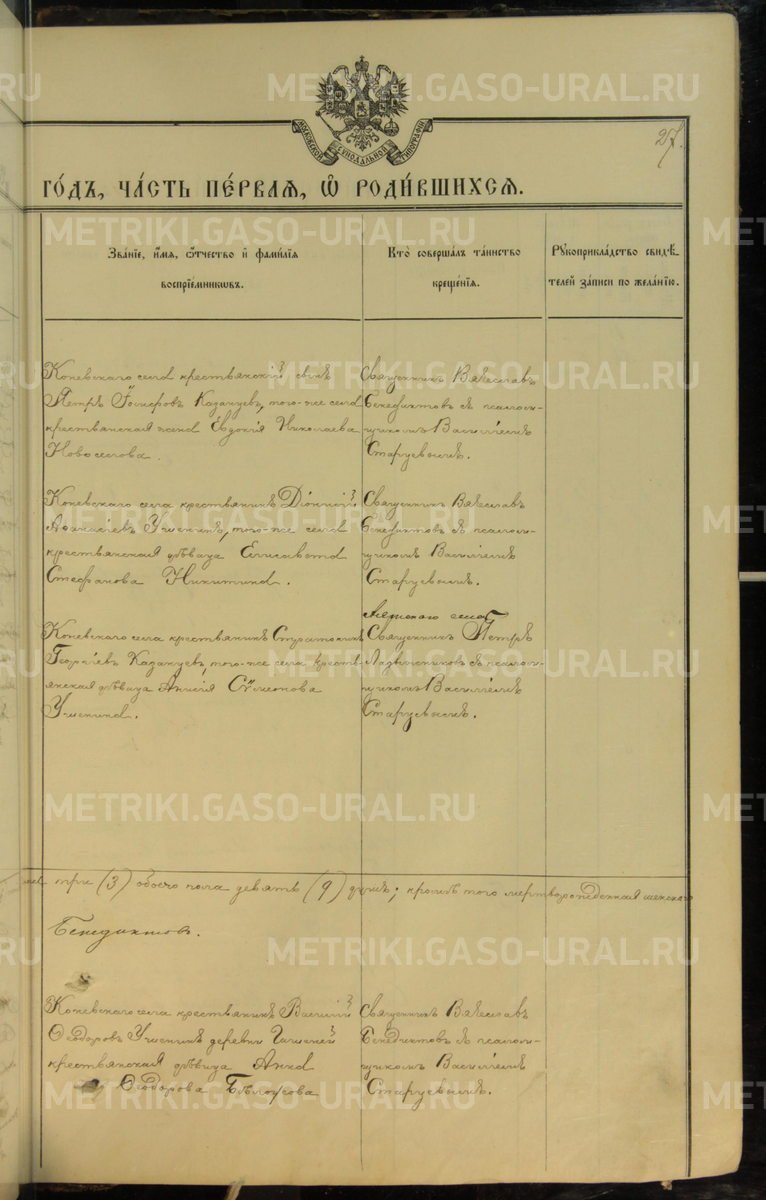 27.
МОСКОВСКОЙ СѴНОДАЛЬНОЙ ТИПОГРАФІИ
ГО́ДЪ, ЧА́СТЬ ПЕ́РВАЯ, Ѽ РОДИ́ВШИХСЯ.
Зва́ніе, и́мя, ѻ҆́тчество и҆ фами́лія
воспріе́мниковъ.
Кто̀ соверша́лъ та́инство
креще́нія.
Рꙋкоприкла́дство свидѣ́-
телей за́писи по жела́нію.
Коневскаго села крестьянскій сынъ
Петръ Казанцевъ, того-же села
крестьянская жена Евдокія Николаева
Новоселова.
Священникъ Вячеславъ
Бенедиктовъ съ псалом-
щикомъ Василіемъ
Старцевымъ.
Коневскаго села крестьянинъ Діонисій
Аѳанасіевъ Ушенинъ, того-же села
крестьянская дѣвица Елисавета
Стефанова Никитина.
Священникъ Вячеславъ
Бенедиктовъ съ псалом-
щикомъ Василіемъ
Старцевымъ.
Коневскаго села крестьянинъ
Георгіевъ Казанцевъ, того-же села кресть-
янская дѣвица Анисія Сѵмеонова
Ушенина.
села
Священникъ Петръ
съ псалом-
щикомъ Василіемъ
Старцевымъ.
три (3) обоего пола девять (9) душъ; кромѣ того мертворожденная женскаго
Бенедиктовъ.
Коневскаго села крестьянинъ Василій
Ѳеодоровъ Ушенинъ деревни
крестьянская дѣвица Анна
Ѳеодорова Бѣлоусова
Священникъ Вячеславъ
Бенедиктовъ съ псалом-
щикомъ Василіемъ
Старцевымъ.
METRIKI.GASO-URAL.RU